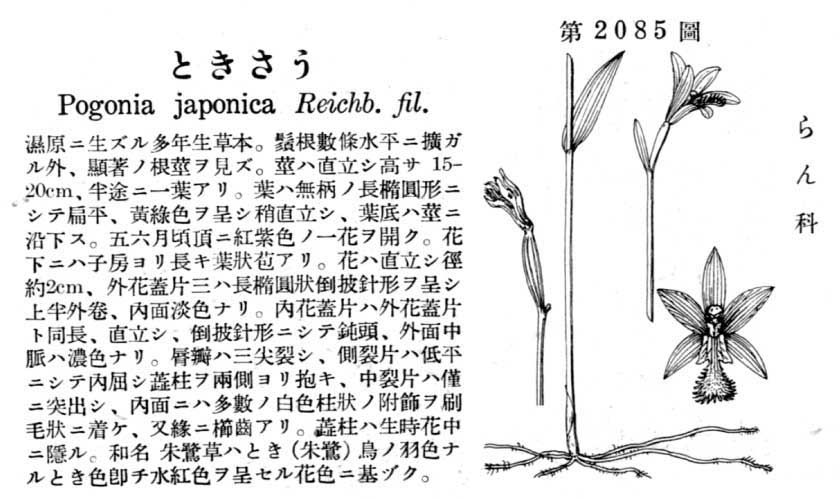 第 2085 圖
ときさう
Pogonia japonica Reichb. fil.
濕原ニ生ズル多年生草本。鬚根數條水平ニ擴ガ
ル外、顯著ノ根莖ヲ見ズ。莖ハ直立シ高サ 15–
20cm、半途ニ一葉アリ。葉ハ無柄ノ長橢圓形ニ
シテ扁平、黃綠色ヲ呈シ稍直立シ、葉底ハ莖ニ
沿下ス。五六月頃頂ニ紅紫色ノ一花ヲ開ク。花
下ニハ子房ヨリ長キ葉狀苞アリ。花ハ直立シ徑
約2cm、外花蓋片三ハ長橢圓狀倒披針形ヲ呈シ
上半外卷、內面淡色ナリ。內花蓋片ハ外花蓋片
ト同長、直立シ、倒披針形ニシテ鈍頭、外面中
脈ハ濃色ナリ。脣瓣ハ三尖裂シ、側裂片ハ低平
ニシテ內屈シ蕋柱ヲ兩側ヨリ抱キ、中裂片ハ僅
ニ突出シ、內面ニハ多數ノ白色柱狀ノ附飾ヲ刷
毛狀ニ着ケ、又緣ニ櫛齒アリ。蕋柱ハ生時花中
ニ隱ル。和名 朱鷺草ハとき (朱鷺) 鳥ノ羽色ナ
ルとき色卽チ水紅色ヲ呈セル花色ニ基ヅク。
らん科